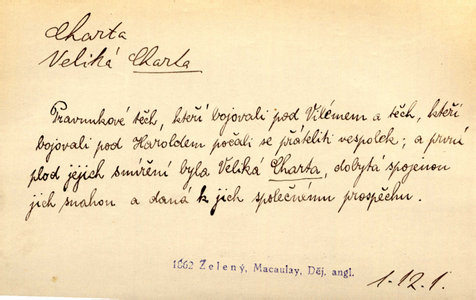 Charta
Veliká Charta
Pravnukové těch, kteří bojovali pod Vilémem a těch, kteří
bojovali pod Haroldem počali se přáteliti vespolek; a první
plod jejich smíření byla Veliká Charta, dobytá spojenou
jich snahou a daná k jich společnému prospěchu.
1862 Zelený, Macaulay, Děj. angl.
1.12.1.